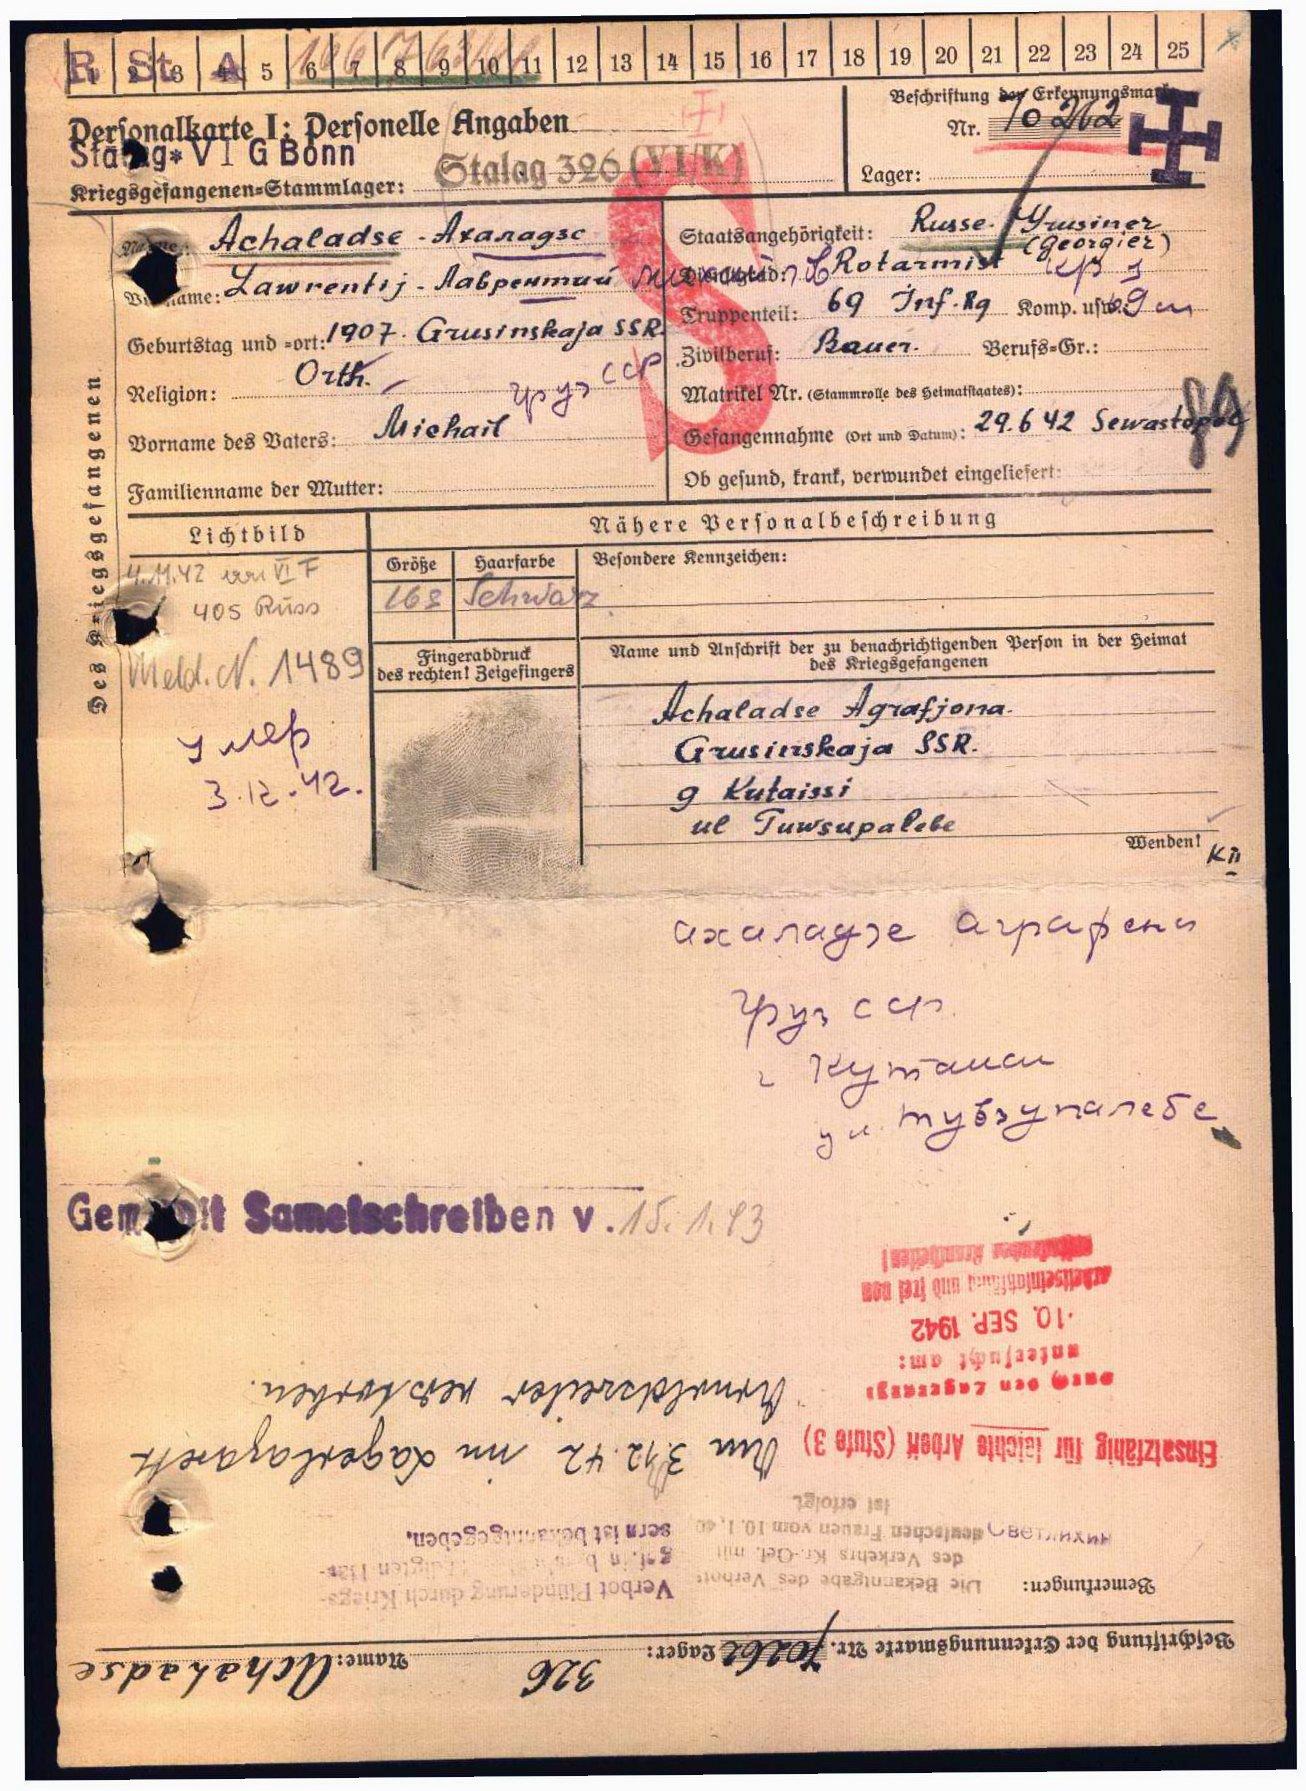 R St A 5 6 7 8 9 10 11 12 13 14 15 16 17 18 19 20 21 22 23 24 25
Personalkarte I: Personelle Angaben
Stalag VI G Bonn
Stalag 326 (VI/K)
Kriegsgefangenen-Stammlager:
Beschriftung der Erkennungsmarke
Nr. 70262
Lager:
Des Kriegsgefangenen
Name: Achaladse - Ахаладзе
Vorname: Lawrentij - Лаврентий
Geburtstag und -ort: 1907. Grusinskaja SSR.
груз ССР
Religion: Orth.
Vorname des Vaters: Michail
Familienname der Mutter:
S
Staatsangehörigkeit: Russe. Grusiner
(Georgier)
Dienstgrad: Rotarmist
Truppenteil: 69 Inf. Rg Komp. usw.:
Zivilberuf: Bauer. Berufs-Gr.:
Matrikel Nr. (Stammrolle des Heimatstaates):
Gefangennahme (Ort und Datum): 29.6 42 Sewastopol
89
Ob gesund, krank, verwundet eingeliefert:
Lichtbild
4.11.42 VI F
405 Russ
Meld. N. 1489
умер
3.12.42.
Nähere Personalbeschreibung
Größe Haarfarbe Besondere Kennzeichen:
168 Schwarz
Fingerabdruck
des rechten! Zeigefingers
Name und Anschrift der zu benachrichtigenden Person in der Heimat
des Kriegsgefangenen
Achaladse Agrafjona.
Grusinskaja SSR.
g Kutaissi
ul Tuwsupalebe
Wenden!
K II
ахаладзе аграфена
груз ССР.
г Кутаиси
ул. тувзупалебе
Gem. mit Samelschreiben v. 15.1.43
Beschriftung der Erkennungsmarke Nr. 70262 Lager: 326 Name: Achaladse
Bemerkungen:
Die Bekanntgabe des Verbots
des Verkehrs Kr.-Gef. mit
deutschen Frauen vom 10.1.40
ist erfolgt.
Светлихин
Verbot Plünderung durch Kriegs-
sern ist bekanntgegeben.
Einsatzfähig für leichte Arbeit (Stufe 3)
Am 3.12.42 im Lagerlazarett
Arnoldsweiler verstorben.
durch den Lagerarzt
untersucht am:
10. SEP. 1942
arbeitseinsatzfähig und frei von
ansteckenden Krankheiten!